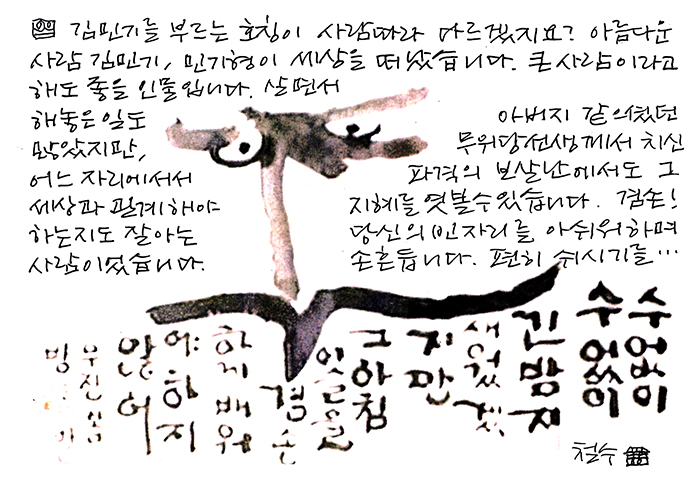 김민기를 부르는 호칭이 사람따라 다르겠지요? 아름다운
사람 김민기, 민기형이 세상을 떠났습니다. 큰 사람이라고
해도 좋을 인물입니다. 살면서
해놓은 일도
많았지만,
어느 자리에서서
세상과 관계해야
하는지도 잘아는
사람이었습니다.
아버지 같으셨던
무위당선생께서 치신
파격의 보살난에서도 그
지혜를 엿볼수있습니다. 겸손!
당신의 빈자리를 아쉬워하며
손흔듭니다. 편히 쉬시기를…
수없이
수없이
긴밤지
지만
그아침
이슬을
겸손
하게 배워
야 하지
않어
철수